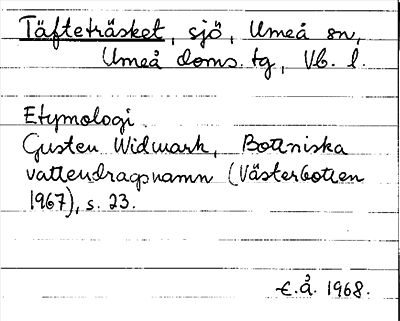 Täfteträsket, sjö, Umeå sn,
Umeå doms. tg, Vb. l.
Etymologi
Gusten Widmark, Bottniska
vattendragsnamn (Västerbotten
1967), s. 23.
€.å. 1968.